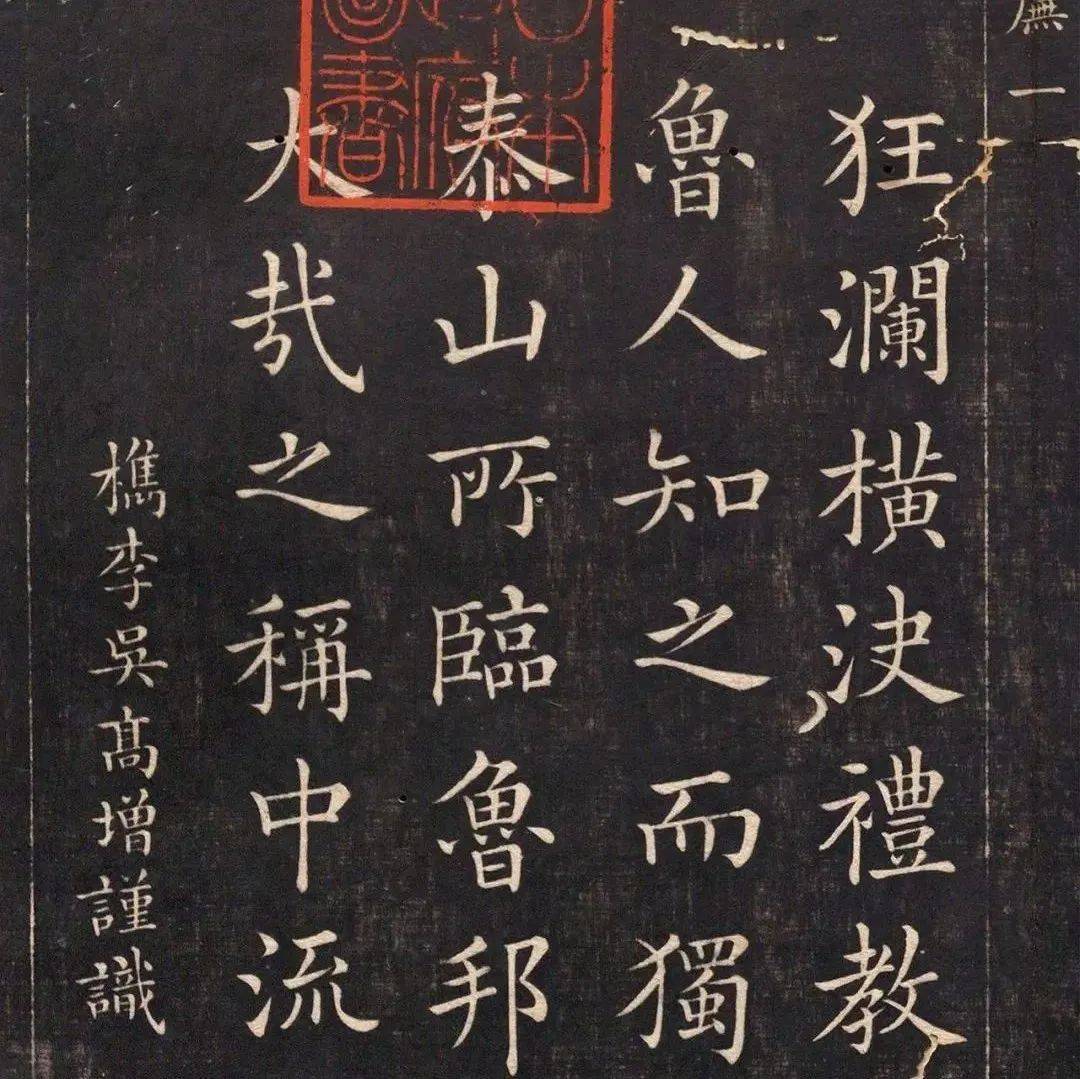 廡一
狂瀾橫決禮教
魯人知之而獨
泰山所臨魯邦
大哉之稱中流
檇李吳髙增謹識